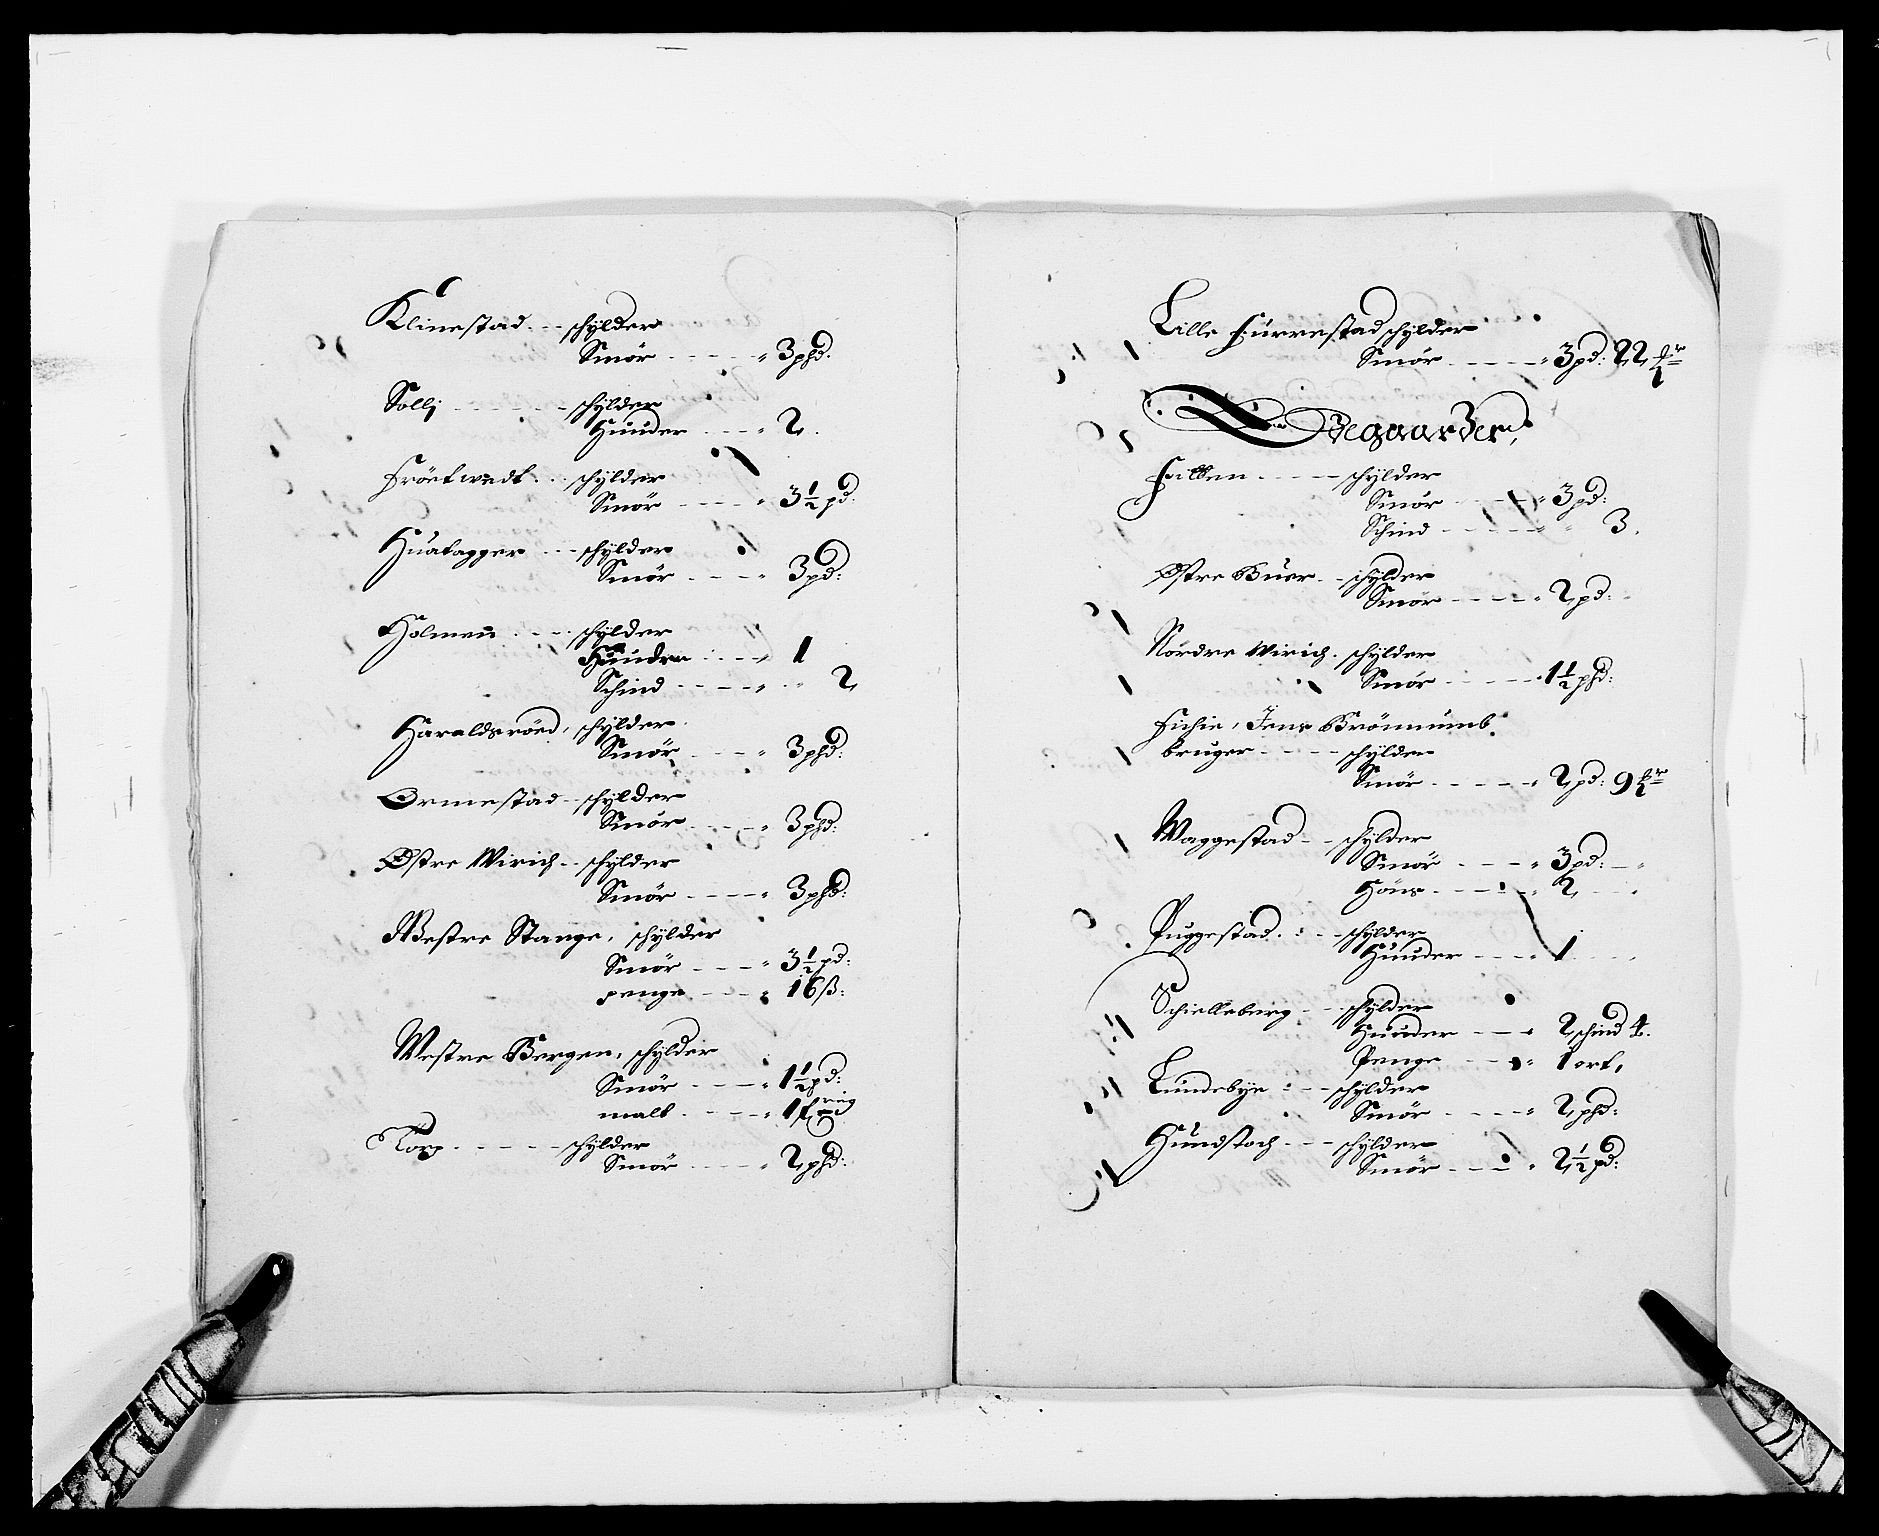 Klinestad - - schylder
Smör - - - - „ 3 phd.
Sollj - - - - - schylder
Huuder - - - „ 2
schylder
Smör - - - - „ 3½ pd:
Huatagger - - schylder
Smör - - - - „ 3 pd:
Holmenn - - - schylder
Huuder - - - „ 1
Schind - - - - „ „ 2
Haraldsröed, schylder
Smör - - - - „ 3 phd:
Ormestad - - schylder
Smör - - - - „ 3 phd:
Østre Wirich - - schylder
Smör - - - - „ 3 phd:
Westre Stange, schylder
Smör - - - - „ 3½ pd:
penge - - - „ 16 ß:
Westre Bergen, schylder
Smör - - - - „ 1½ pd:
malt - - - - „ 1
Torp - - - - - schylder
Smör - - - - „ 2 phd:
Lille Furrestad schylder
Smör - - - - „ 3 pd: 22
Ødegaarder,
schylder
Smör - - - - „ 3 pd:
Schind - - - - „ „ 3.
Østre Buer - - schylder
Smör - - - - „ 2 pd:
Nordre Wirich - schylder
Smör - - - - „ 1½ phd:
Jens
bruger - - - - schylder
Smör - - - - „ 2 pd: 9
Waggestad - - schylder
Smör - - - - „ 3 pd: - „
Höns - - - - „ 2 - - „
Puggestad - - - schylder
Huuder - - - „ 1 - - „
Schielleberg - - schylder
Huuder - - - „ 2 schind 4.
Penge - - - „ 1 ort,
Lundebye - - schylder
Smör - - - - „ 2 phd:
Hundstoch - - schylder
Smör - - - - „ 2½ pd: